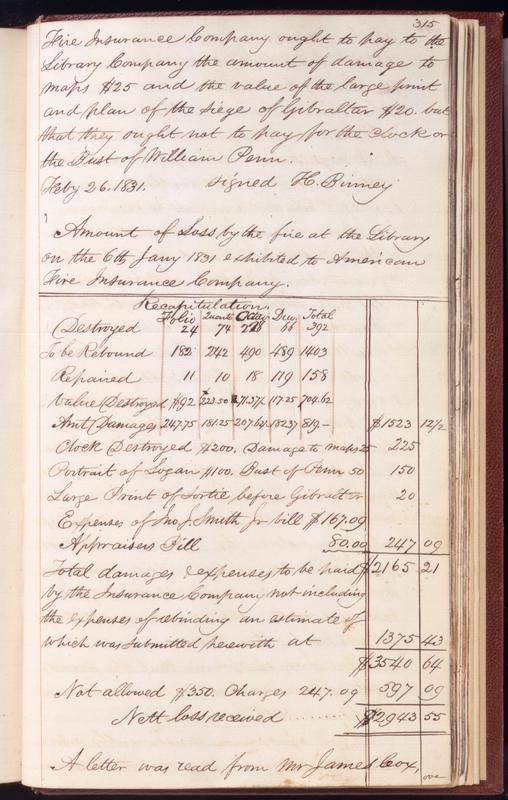 315
Fire Insurance Company ought to pay to the
Library Company the amount of damage to
maps $25 and the value of the large print
and plan of the siege of Gibraltar $20. but
that they ought not to pay for the clock or
the Bust of William Penn.
Feby 26. 1831. signed H. Binney
Amount of Loss by the fire at the Library
on the 6th Jany 1831 exhibited to American
Fire Insurance Company.
Recapitulation.
Folio Quarto Octavo Duo. Total
Destroyed 24 74 228 66 392
To be Rebound 182 242 490 489 1403
Repaired 11 10 18 119 158
Value Destroyed $192 223.50 171.37½ 117.25 704.62
Amt Damages 247.75 181.25 207.62½ 182.37 819- $1523 12½
Clock Destroyed $200. Damage to maps 25 225
Portrait of Logan $100. Bust of Penn 50 150
Large Print of Sortie before Gibraltar 20
Expenses of Jno. J. Smith Jr bill $167.09
Appraisers Bill 80.00 247 09
Total damages & expenses to be paid $2165 21
by the Insurance Company not including
the expenses of rebinding an estimate of
which was submitted herewith at 1375 43
$3540 64
Not allowed $350. Charges 247.09 597 09
Nett loss received $2943 55
A letter was read from Mr James Cox,